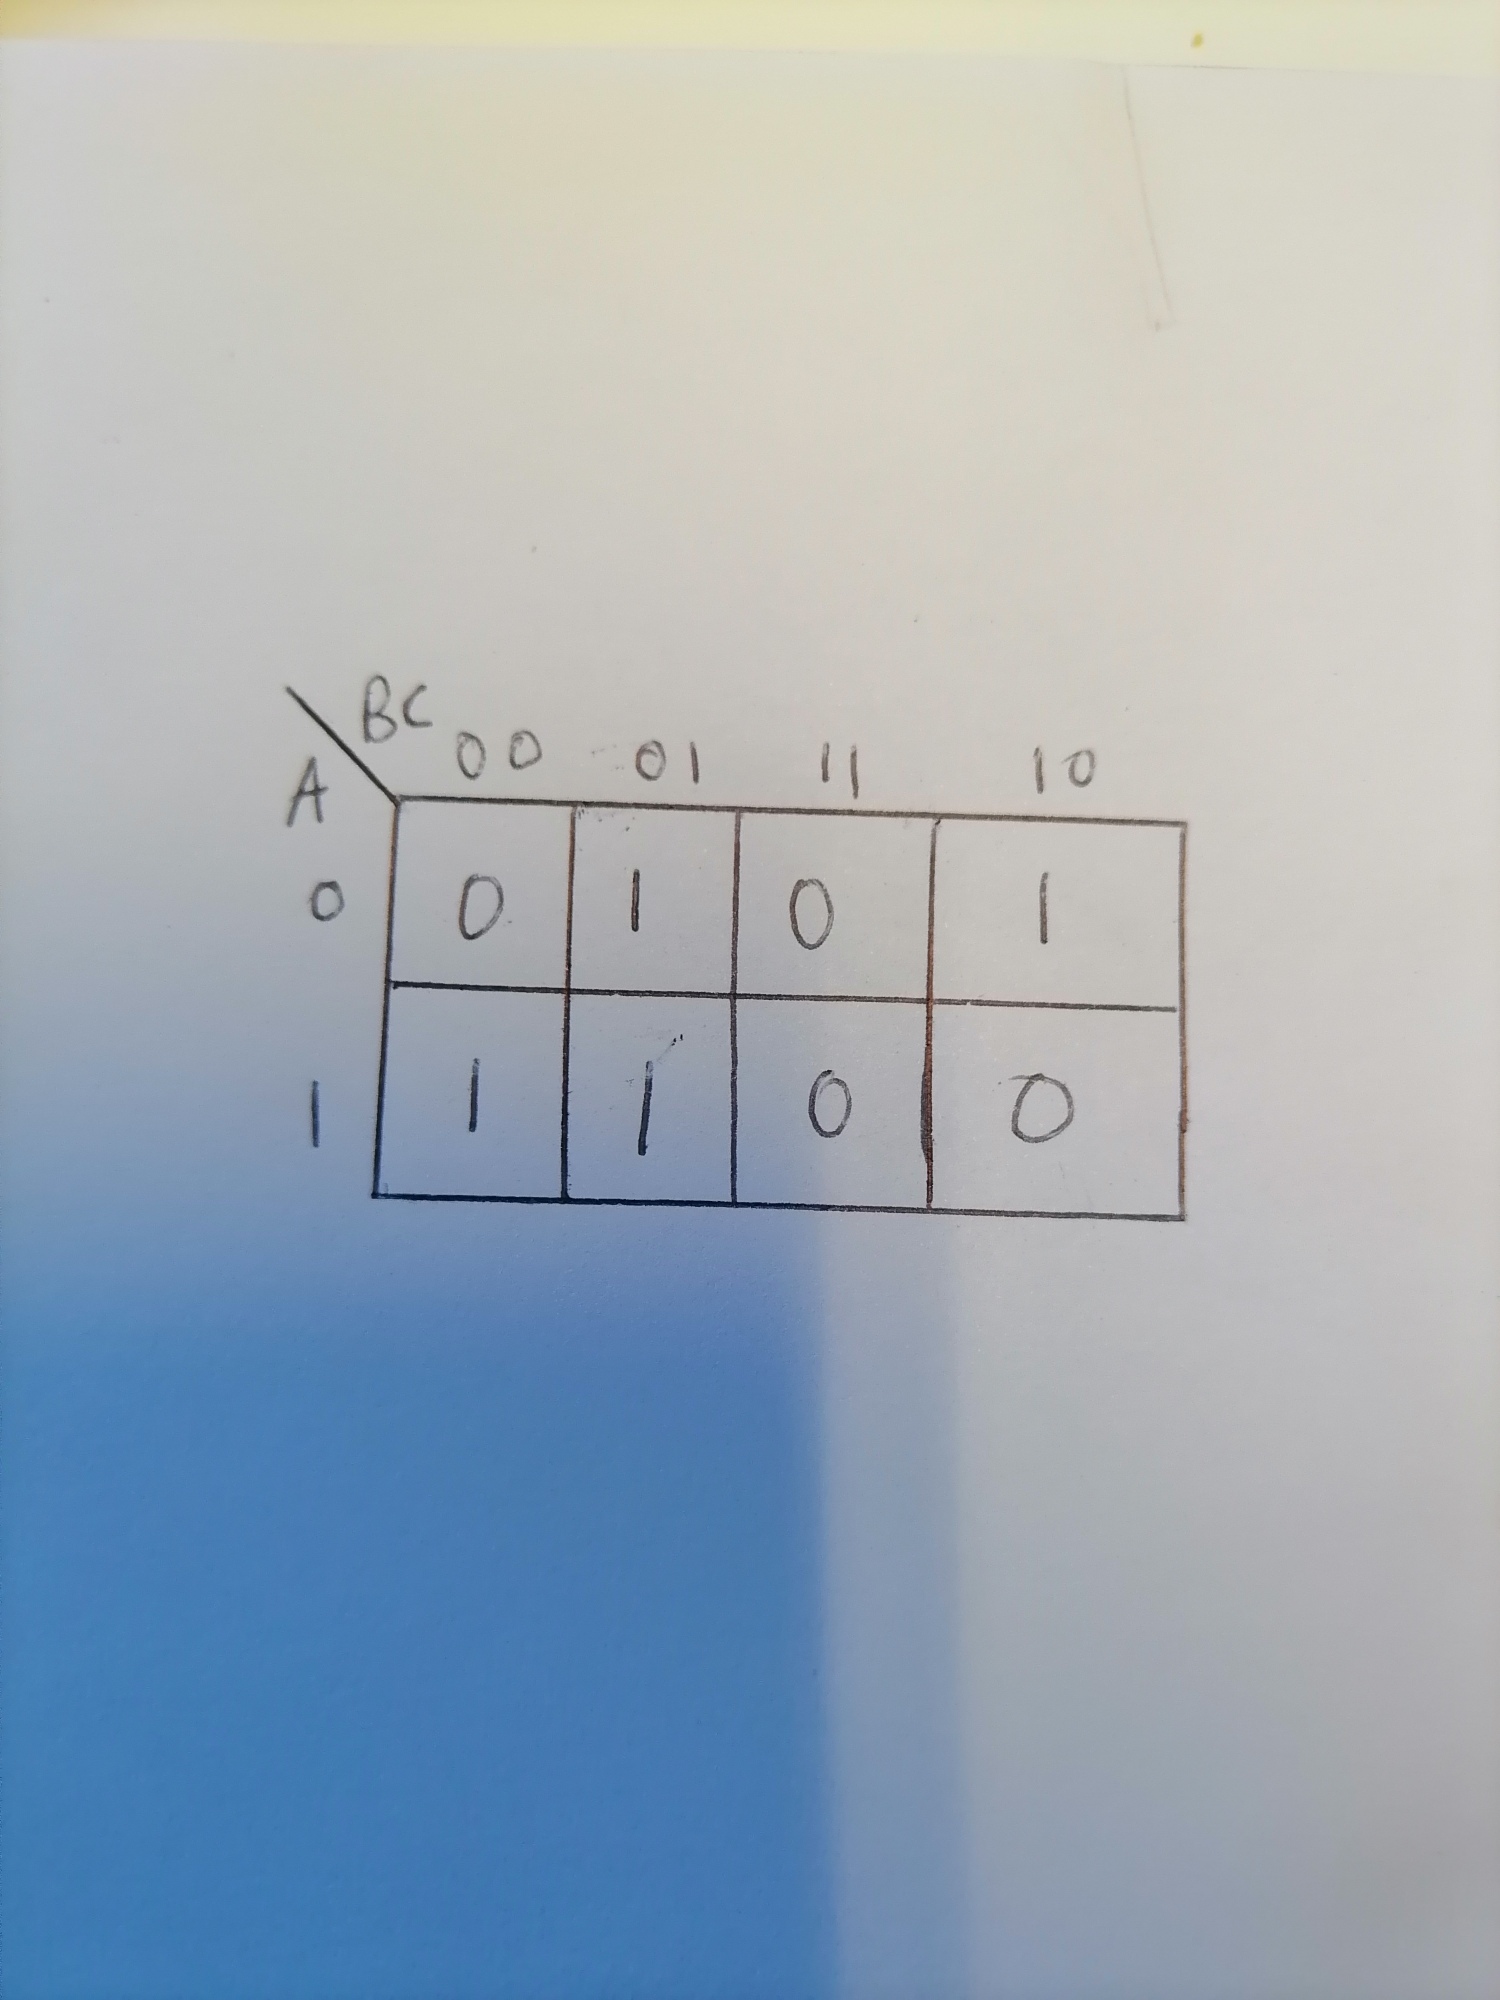 BC 00 01 11 10
A
0 0 1 0 1
1 1 1 0 0